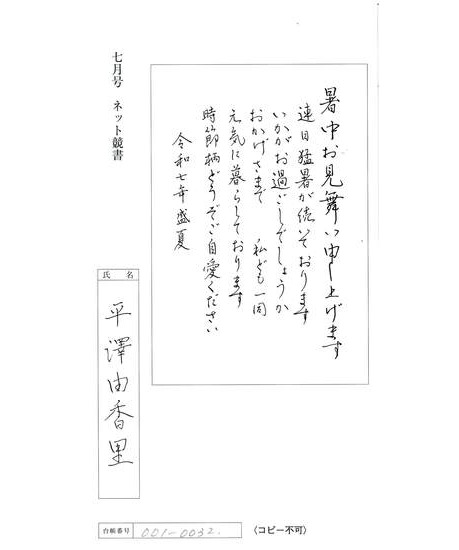 暑中お見舞い申し上げます
連日猛暑が続いております
いかがお過ごしでしょうか
おかげさまで 私ども一同
元気に暮らしております
時節柄どうぞご自愛ください
令和七年盛夏
七月号 ネット競書
氏名
平澤由香里
台帳番号
001-0032.
〈コピー不可〉